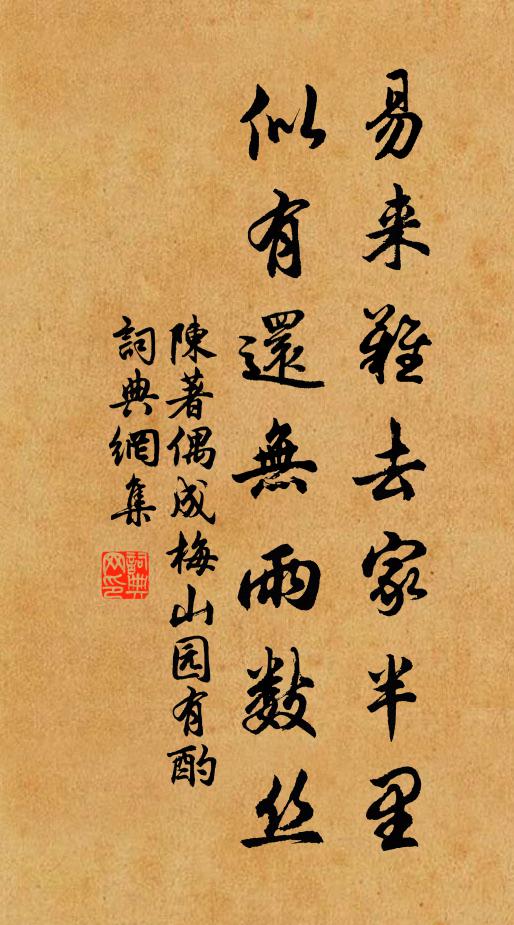 易来難去家半里
似有還無雨数丝
陳著偶成梅山园有酌
詞典網集
詞典
网印